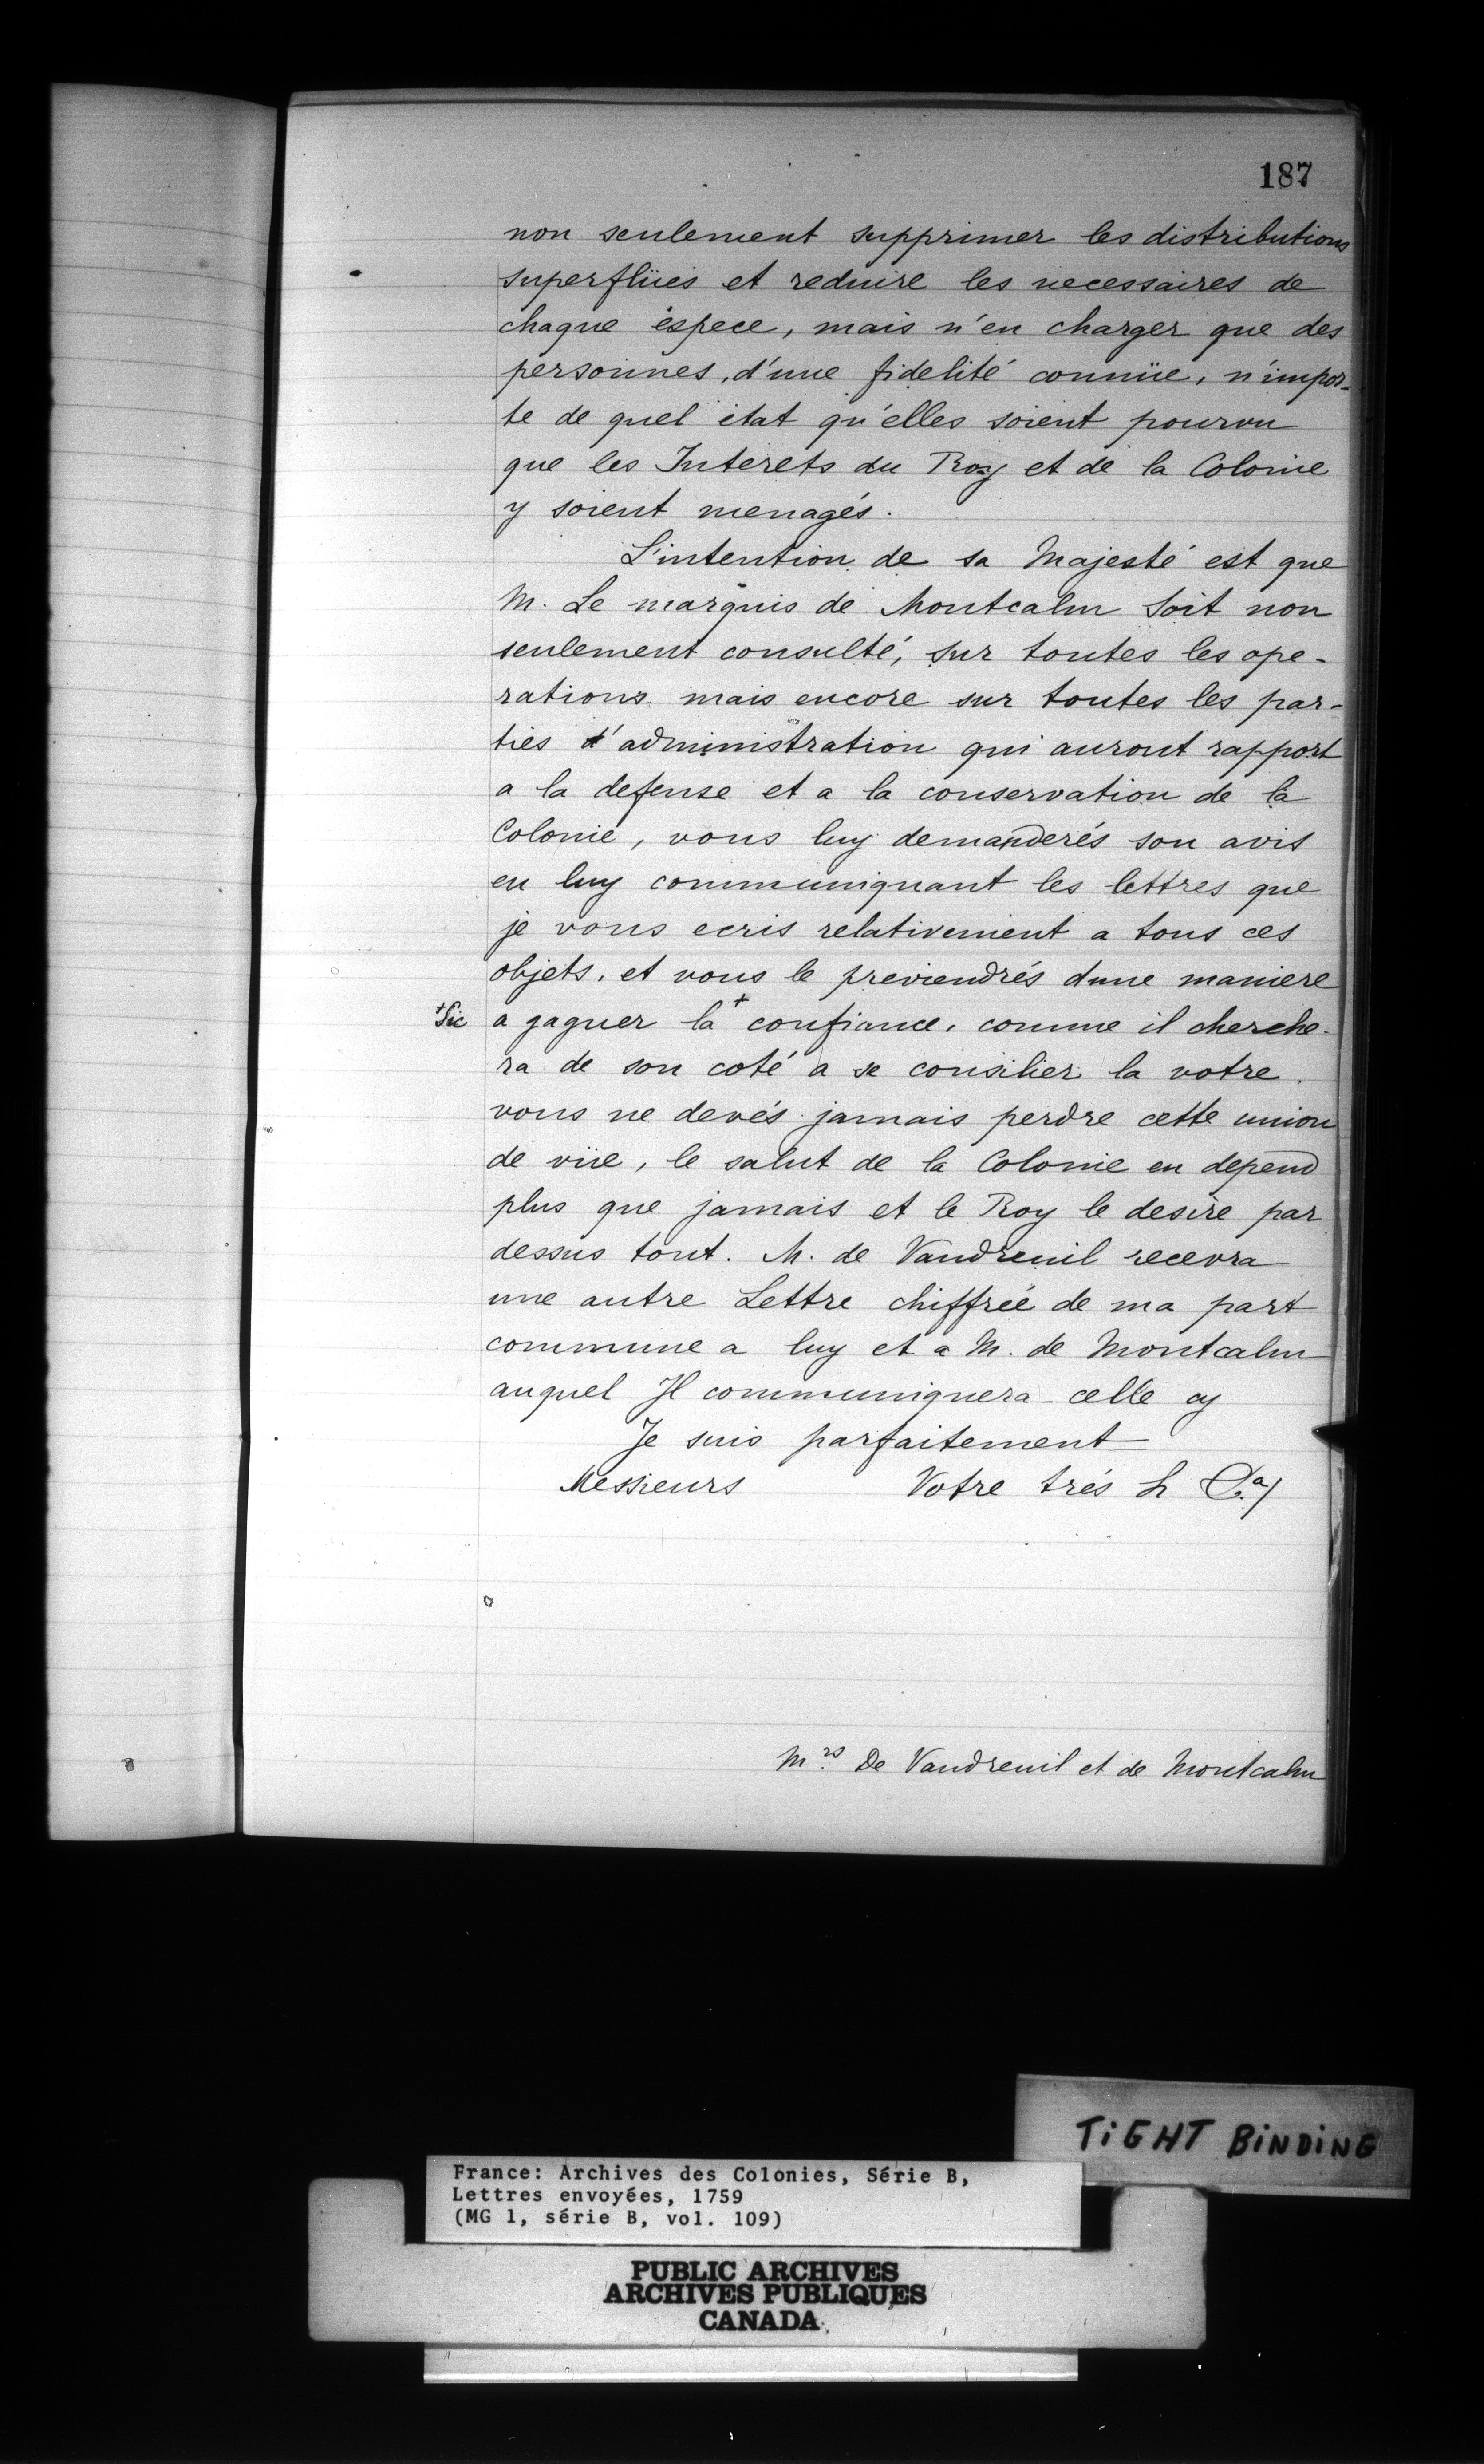 187
non seulement supprimer les distributions
superflües et reduire les necessaires de
chaque espece, mais n'en charger que des
personnes, d'une fidelité connüe, n'impor-
te de quel état qu'elles soient pourvu
que les Interets du Roy et de la Colonie
y soient menagés.
L'intention de sa Majesté est que
M. Le marquis de Montcalm soit non
seulement consulté, sur toutes les ope-
rations mais encore sur toutes les par-
ties d'administration qui auront rapport
a la defense et a la conservation de la
Colonie, vous luy demanderés son avis
en luy communiquant les lettres que
je vous ecris relativement a tous ces
objets. et vous le previendrés dune maniere
+Sic a gagner la + confiance, comme il cherche-
ra de son coté a se consilier la votre.
vous ne devés jamais perdre cette union
de vüe, le salut de la Colonie en depend
plus que jamais et le Roy le desire par
dessus tout. M. de Vaudreuil recevra
une autre Lettre chiffrée de ma part
commune a luy et a M. de Montcalm
auquel Il communiquera celle cy
Je suis parfaitement
Messieurs Votre trés h &.a/
Mrs De Vaudreuil et de Montcalm
TIGHT BINDING
France: Archives des Colonies, Série B,
Lettres envoyées, 1759
(MG 1, série B, vol. 109)
PUBLIC ARCHIVES
ARCHIVES PUBLIQUES
CANADA